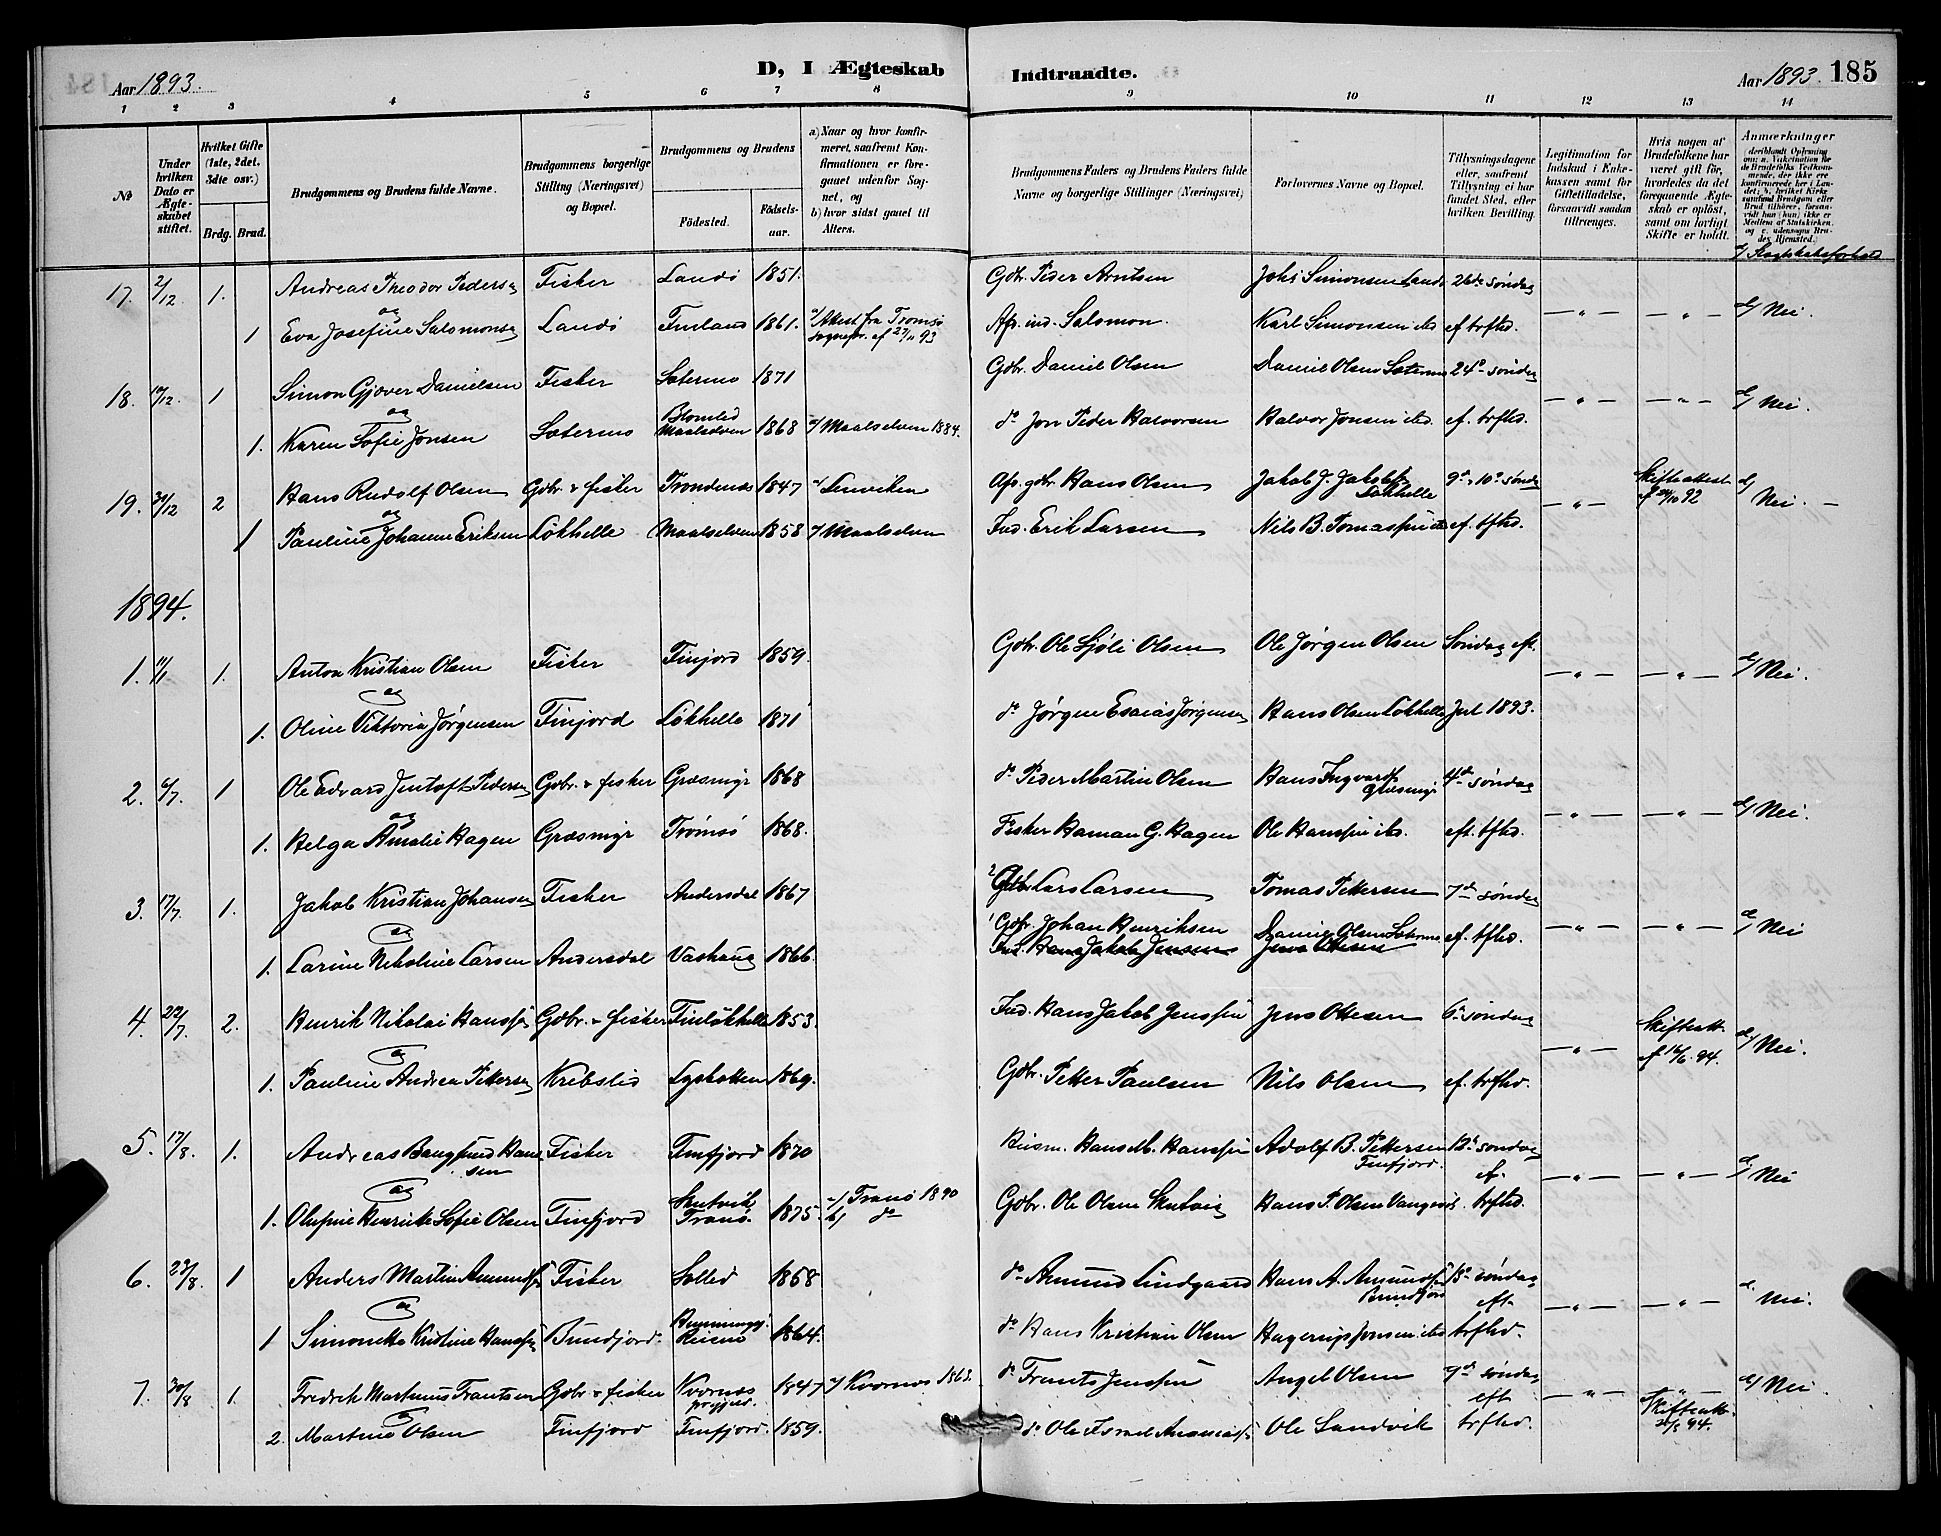 Aar 1893.
D, I Ægteskab
Indtraadte.
Aar 1893. 185
1 2 3 4 5 6 7 8 9 10 11 12 13 14
№
Under hvilken Dato er Ægteskabet stiftet.
Hvilket Gifte (1ste, 2det, 3dte osv.)
Brdg. Brud.
Brudgommens og Brudens fulde Navne.
Brudgommens borgerlige Stilling (Næringsvei) og Bopæl.
Brudgommens og Brudens
Fødested.
Fødselsaar.
a) Naar og hvor konfirmeret, saafremt Konfirmationen er foregaaet udenfor Sognet, og
b) hvor sidst gaaet til Alters.
Brudgommens Faders og Brudens Faders fulde Navne og borgerlige Stillinger (Næringsvei)
Forlovernes Navne og Bopæl.
Tillysningsdagene eller, saafremt Tillysning ei har fundet Sted, efter hvilken Bevilling.
Legitimation for Indskud i Enkekassen samt for Giftetilladelse, forsaavidt saadan tiltrænges.
Hvis nogen af Brudefolkene har været gift før, hvorledes da det foregaaende Ægteskab er opløst, samt om lovligt Skifte er holdt.
Anmærkninger
d/ Slægtskabsforhold
17. 2/12 1. Andreas Theodor Pedersen Fisker Landö 1851. Gdbr. Peder Arntsen Johs Simonsen Landö 26de søndag
og
1 Eva Josefine Salomonsen Landö Finland 1861. a/ Attest fra Tromsö Sognepr. af 27/11 93 Afs. ind. Salomon. Karl Simonsen ibd ef trfhd. — " — — " — d/ Nei.
18. 17/12. 1 Simon Gjøver Danielsen Fisker Sætermo 1871 Gdbr. Daniel Olsen Daniel Olsen Sætermo 24de søndag
og
1. Karen Sofie Jonsen Sætermo Blomlid Maalselven 1868 a/ Maalselven 1884. do Jon Peder Halvorsen Halvor Jonsen ibd. ef. trfhd. — " — — " — d/ Nei.
19. 30/12 2 Hans Rudolf Olsen Gdbr. & fisker Trondenæs 1847 a/ Lenviken Afs. gdbr. Hans Olsen Jakob J. Jakobsen Løkhelle 9de & 10de sønd Skifteattest af 24/10 92
og
1 Pauline Johanne Eriksen Løkhelle Maalselven 1858 a/ Maalselven Ind. Erik Larsen Nils B. Tomassen ibd ef. tfhd. — " — d/ Nei. —
1894.
1. 11/1 1. Anton Kristian Olsen Fisker Finjord 1859. Gdbr. Ole Sjöli Olsen Ole Jørgen Olsen Søndag eft.
og
1. Oline Viktoria Jørgensen Finjord Løkhelle 1871 do Jørgen Esaias Jørgensen Hans Olsen Løkhelle Jul 1893. — " — — " — d/ Nei.
2. 6/7. 1 Ole Edvard Jentoft Pedersen Gdbr. & fisker Græsmyr 1868 do Peder Martin Olsen Hans Ingvards. Græsmyr 4de søndag
og
1. Helga Amalie Hagen Græsmyr Tromsö 1868. Fisker Haman G. Hagen Ole Hanssen ibd. eft. tfhd. — " — — " — d/ Nei.
3. 17/7. 1. Jakob Kristian Johansen Fisker Andersdal 1867 2 Gdbr. Lars Larsen Tomas Pettersen 7de søndag
og
1. Larine Nikoline Larsen Andersdal Vashaug 1866. 1 Gdbr. Johan Henriksen Daniel Olsen Sætermo ef. tfhd. — " — — " — d/ Nei
Ind. Hans Jakob Jensen Jens Ottesen
4. 22/7. 2. Henrik Nikolai Hanssen Gdbr. & fisker Finløkhelle 1853. Ind. Hans Jakob Jenssen Jens Ottesen 6te søndag Skifteatt. af 16/6. 94.
og
1. Pauline Andrea Pettersen Krebslid Lysbotten 1869. Gdbr. Petter Paulsen Nils Olsen ef. trfhd. — " — d/ Nei.
5. 17/8. 1. Andreas Bangsund Hanssen Fisker Finfjord 1870 Husm. Hans M. Hanssen Adolf B. Pettersen Finfjord. 13de søndag ef.
og
1. Olufine Henrikke Sofie Olsen Finfjord Skutvik Tranö. 1875. a/ Tranö 1890 b/ do Gdbr. Ole Olsen Skutvig Hans P. Olsen Vangsvik. trfhd. — " — — " — d/ Nei
6. 23/8. 1 Anders Martin Amundsen Fisker Solled 1868 do Amund Lindgaard Hans A. Amundsen Bundfjord 13de søndag eft.
og
1 Simonette Kristine Hanssen Bundfjord. Reisnö 1864. do Hans Kristian Olsen Hagerup Jensen ibd trfhd. — " — — " — d. Nei.
7. 30/8 1. Fredrik Martinus Frantsen Gdbr. & fisker Kværnæs prgjeld. 1847 a/ Kværnæs 1863. do Frants Jenssen Angel Olsen 9de søndag eft — " — — " — d/ Nei.
og
2. Martine Olsen Finfjord Finfjord. 1859. do Ole Israel Ananiass. Ole Sandvik trfhd. Skifteatt. 94.